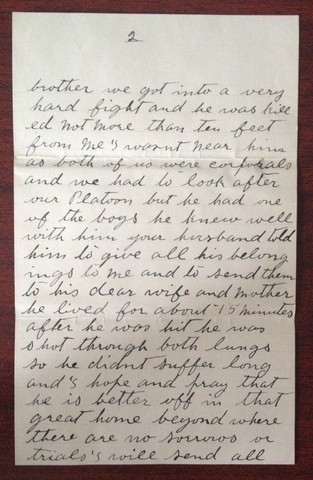 2
brother we got into a very
hard fight and he was kill
ed not more than ten feet
from me I wasnt near him
as both of us were corporals
and we had to look after
our Platoon but he had one
of the boys he knew well
with him your husband told
him to give all his belong
ings to me and to send them
to his dear wife and Mother
he lived for about 15 minutes
after he was hit he was
shot through both lungs
so he didnt suffer long
and I hope and pray that
he is better off in that
great home beyond where
there are no sorrows or
trials I will send all